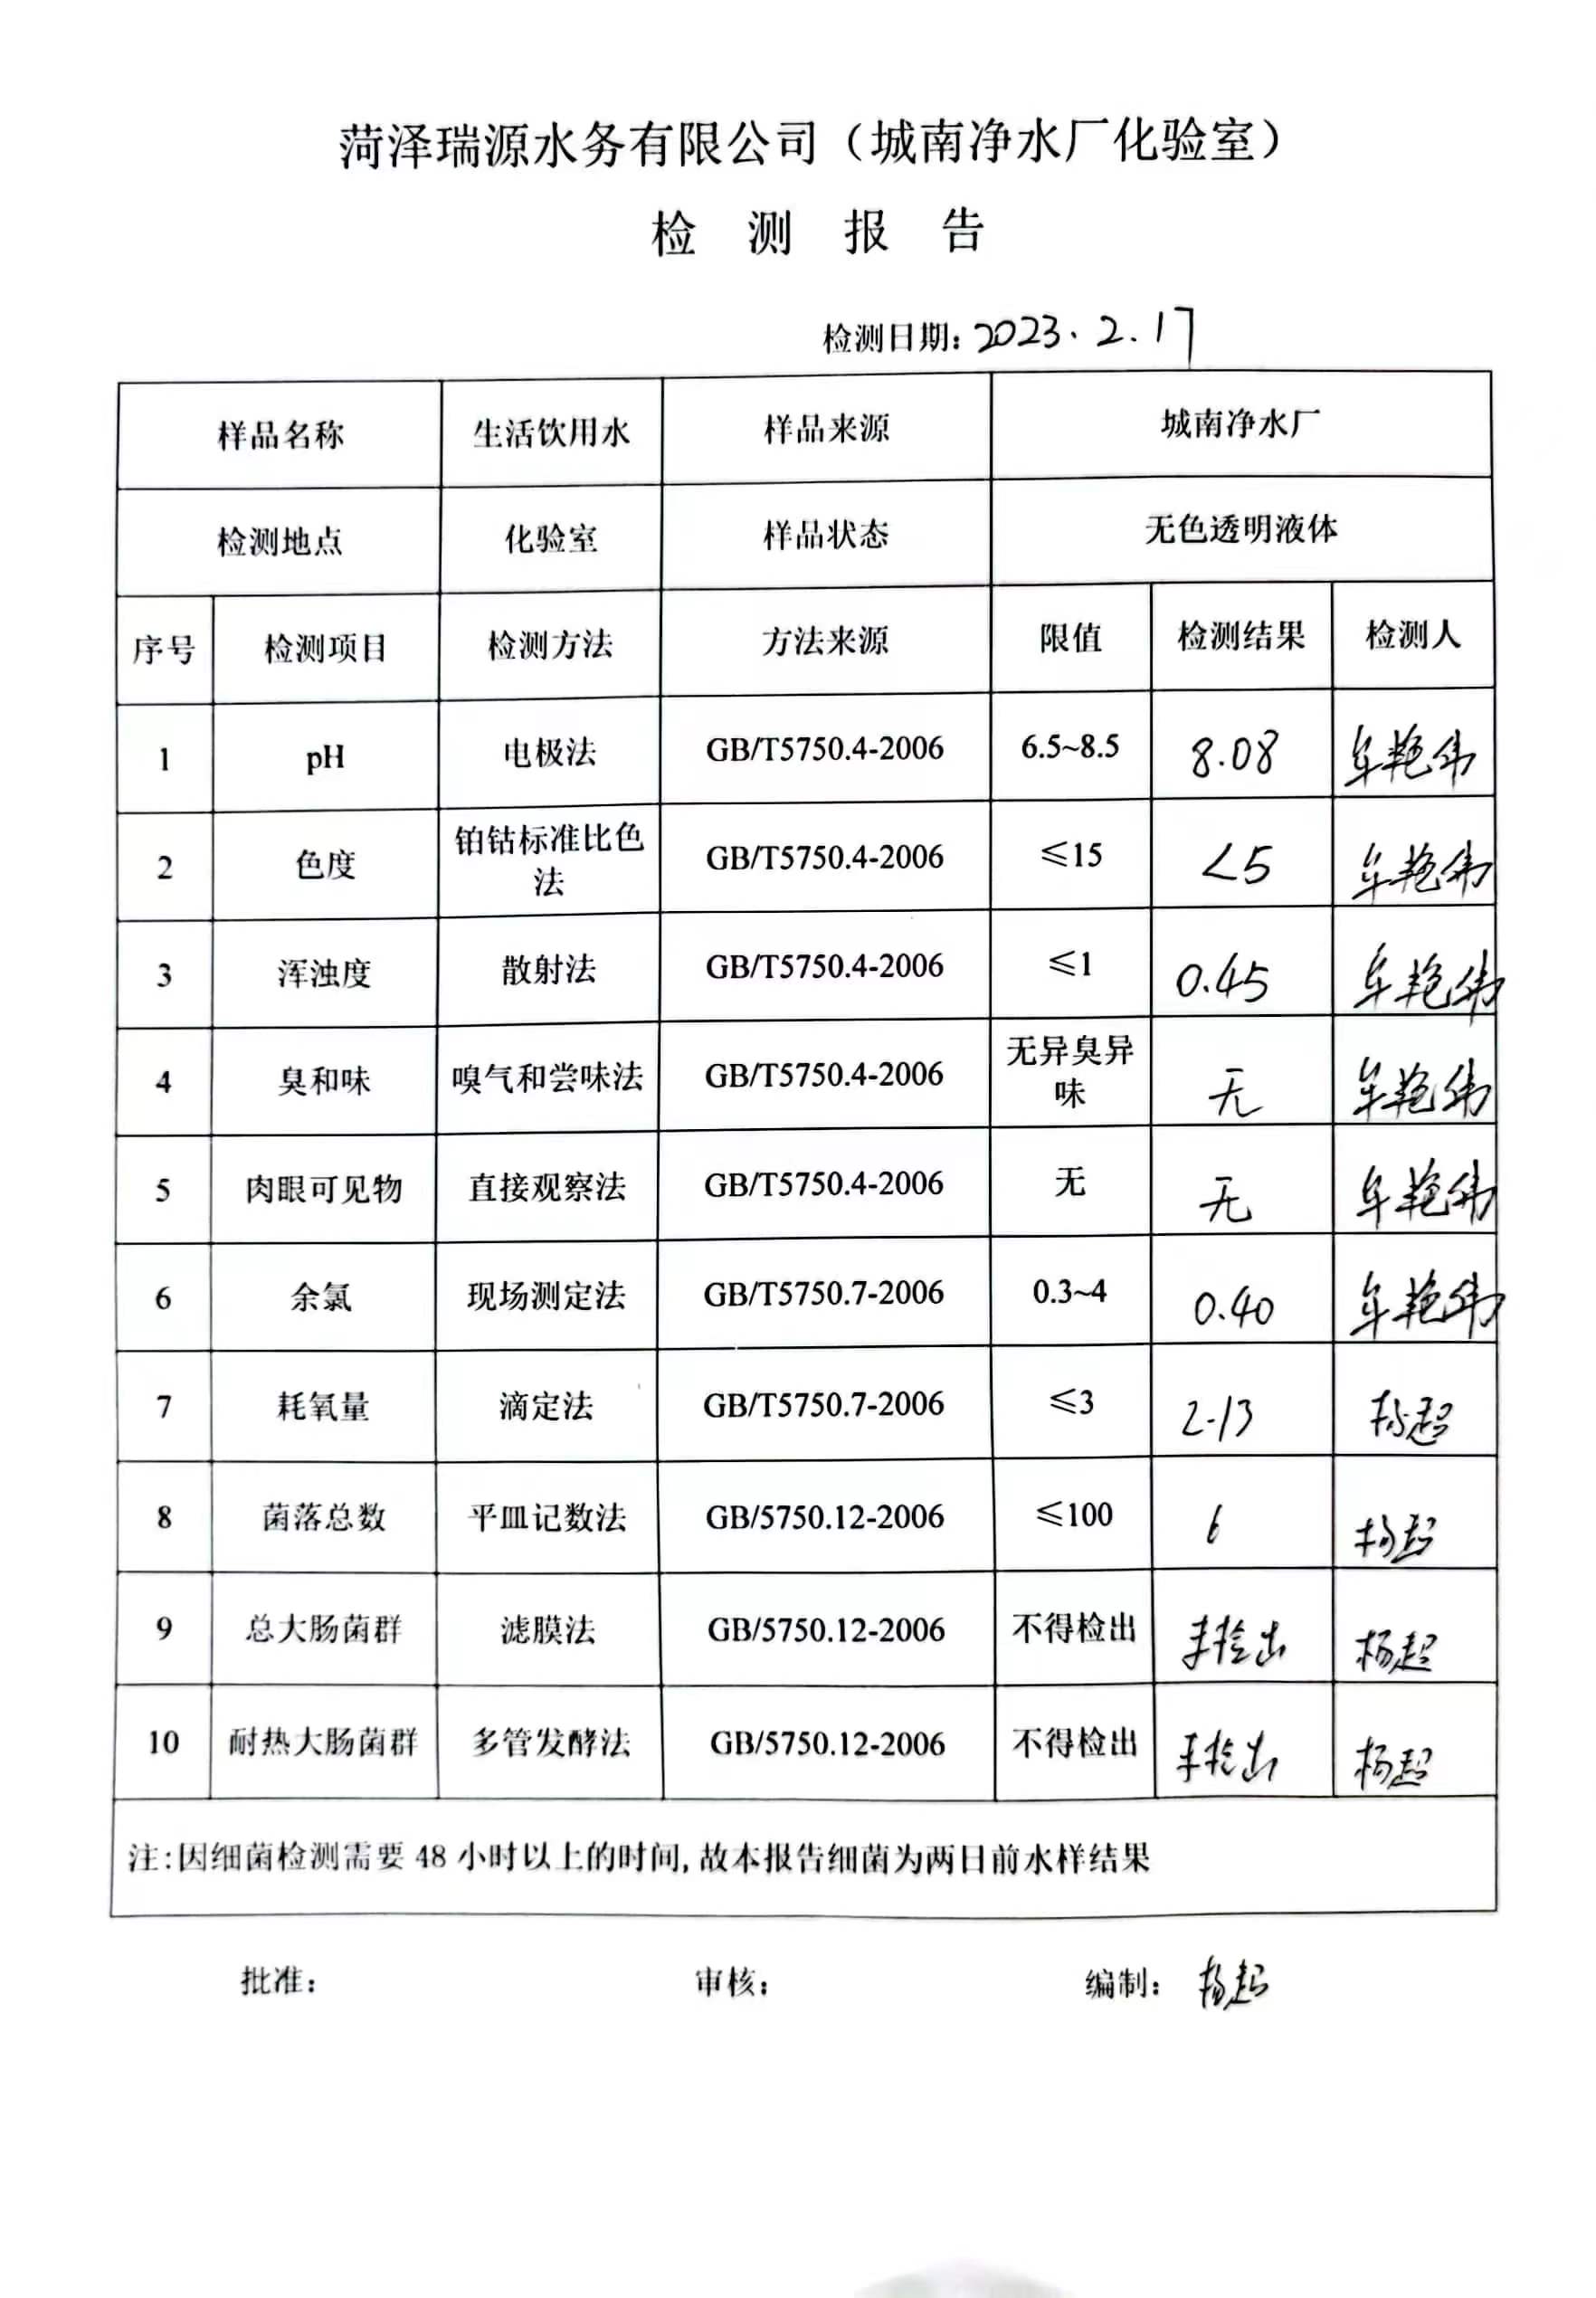 菏泽瑞源水务有限公司（城南净水厂化验室）
检 测 报 告
检测日期: 2023.2.17
样品名称 生活饮用水 样品来源 城南净水厂
检测地点 化验室 样品状态 无色透明液体
序号 检测项目 检测方法 方法来源 限值 检测结果 检测人
1 pH 电极法 GB/T5750.4-2006 6.5~8.5 8.08 车艳伟
2 色度 铂钴标准比色法 GB/T5750.4-2006 ≤15 <5 车艳伟
3 浑浊度 散射法 GB/T5750.4-2006 ≤1 0.45 车艳伟
4 臭和味 嗅气和尝味法 GB/T5750.4-2006 无异臭异味 无 车艳伟
5 肉眼可见物 直接观察法 GB/T5750.4-2006 无 无 车艳伟
6 余氯 现场测定法 GB/T5750.7-2006 0.3~4 0.40 车艳伟
7 耗氧量 滴定法 GB/T5750.7-2006 ≤3 2.13 杨超
8 菌落总数 平皿记数法 GB/5750.12-2006 ≤100 6 杨超
9 总大肠菌群 滤膜法 GB/5750.12-2006 不得检出 未检出 杨超
10 耐热大肠菌群 多管发酵法 GB/5750.12-2006 不得检出 未检出 杨超
注:因细菌检测需要 48 小时以上的时间,故本报告细菌为两日前水样结果
批准: 审核: 编制: 杨超